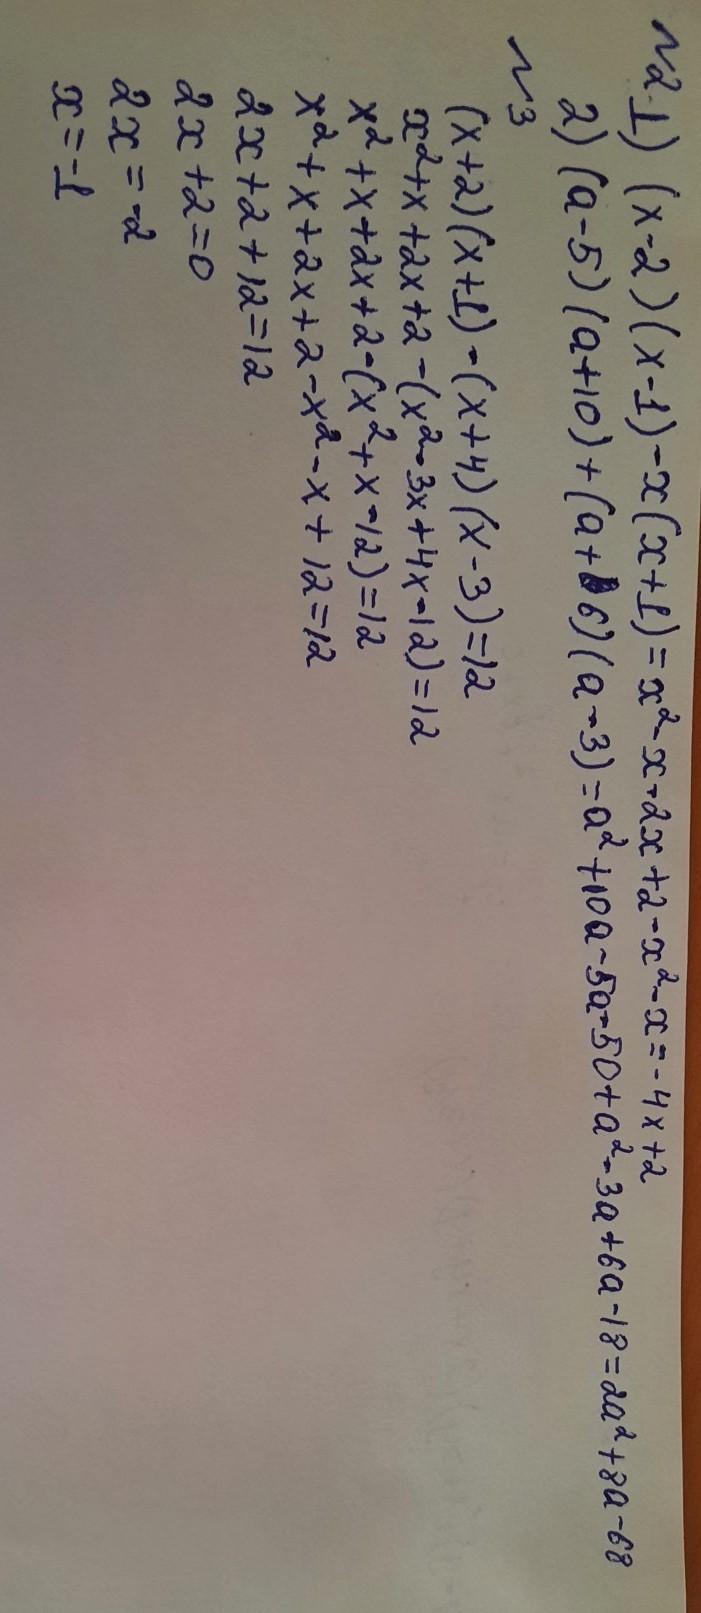 №2 1) (x-2)(x-1)-x(x+1)=x²-x-2x+2-x²-x=-4x+2
2) (a-5)(a+10)+(a+6)(a-3)=a²+10a-5a-50+a²-3a+6a-18=2a²+8a-68
№3
(x+2)(x+1)-(x+4)(x-3)=12
x²+x+2x+2-(x²-3x+4x-12)=12
x²+x+2x+2-(x²+x-12)=12
x²+x+2x+2-x²-x+12=12
2x+2+12=12
2x+2=0
2x=-2
x=-1